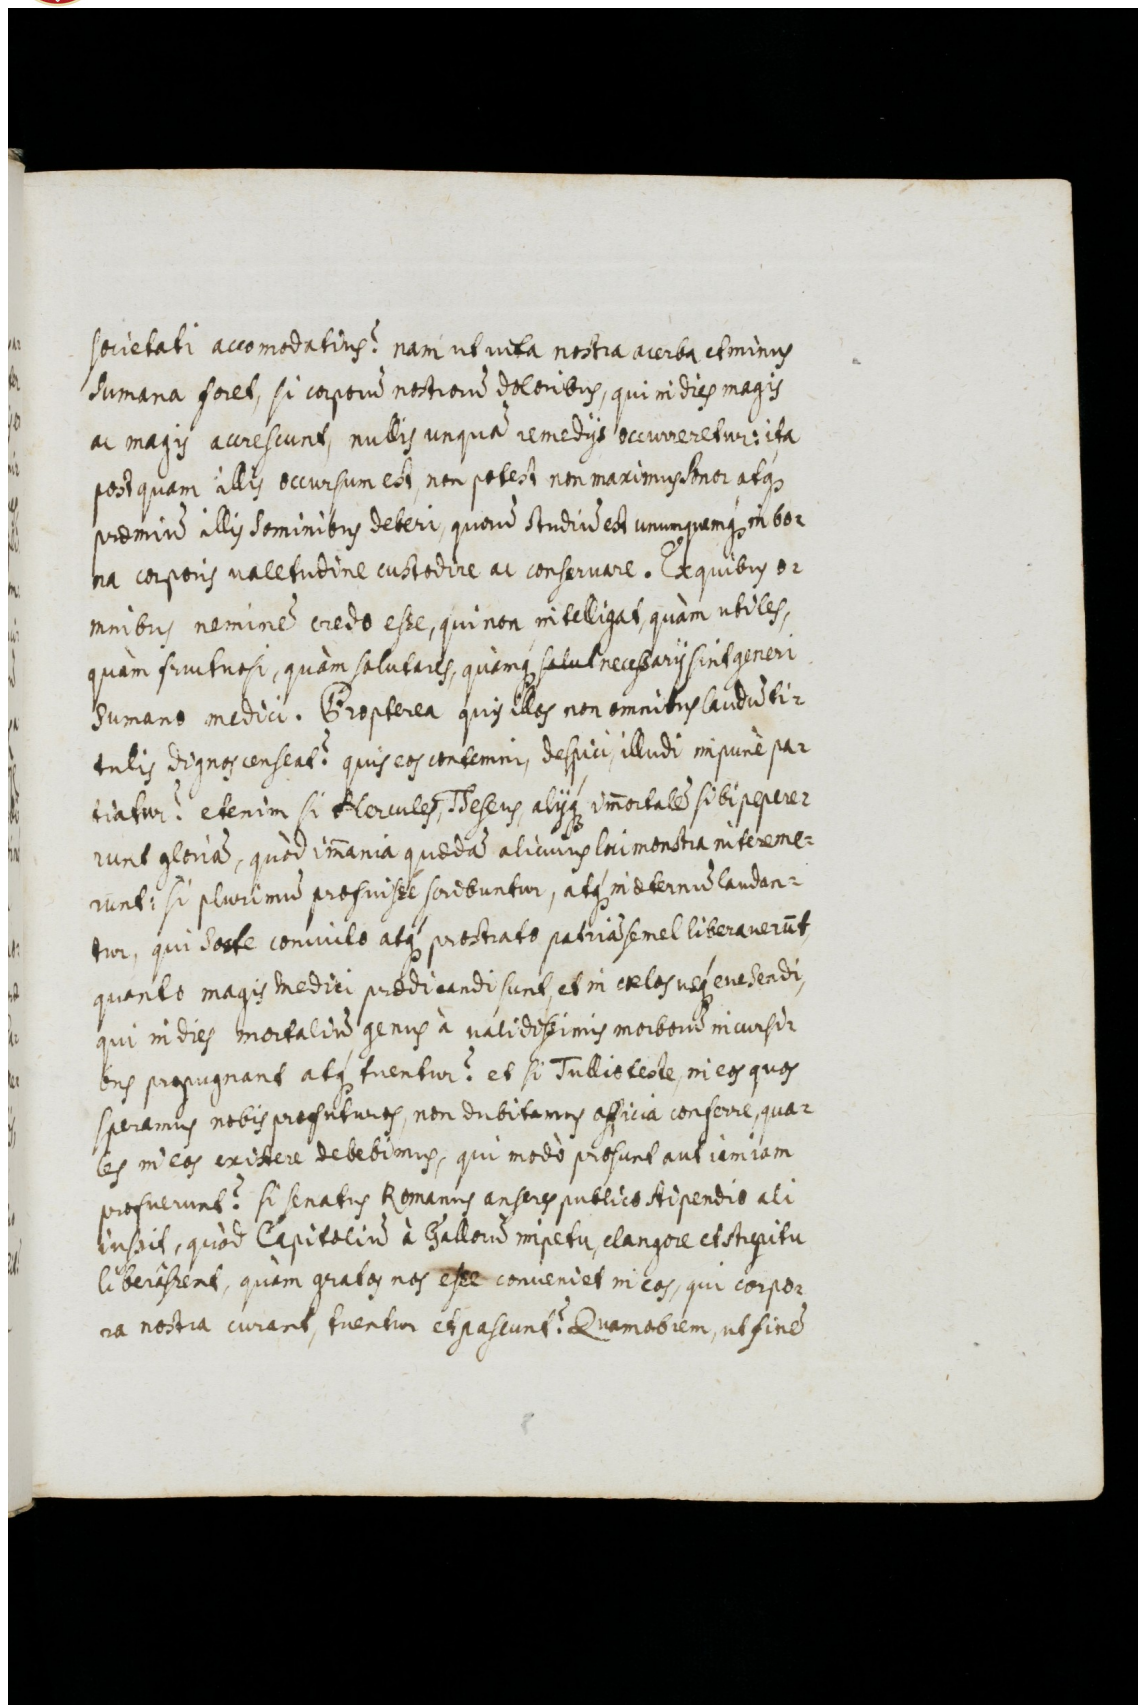 societati accomodatius? nam ut vita nostra acerba et minus
humana foret, si corporũ nostrorũ doloribus, qui in dies magis
ac magis accrescunt, nullis unquã remedijs occurreretur: ita
postquam illis occursum est, non potest non maximus honor atq;
præmiũ illis hominibus deberi, quorũ studiũ est unumquemq; in bo-
na corporis valetudine custodire ac conservare. Ex quibus o-
mnibus neminẽ credo esse, qui non intelligat, quàm utiles,
quàm fructuosi, quàm salutares, quàmq; salut necessarij sint generi
humano medici. Propterea quis illos non omnibus laudũ ti-
tulis dignos censeat? quis eos contemni, despici, illudi impunè pa-
tiatur? etenim si Hercules, Theseus, alijq; im̃ortalẽ sibi pepere-
runt gloriã, quòd im̃ania quædã alicuius loci monstra intereme-
runt: si plurimũ profuisse scribuntur, atq; in æternũ laudan-
tur, qui hoste convicto atq; prostrato patriã semel liberaverũt,
quanto magis medici prædicandi sunt, et in cælos usq; evehendi,
qui in dies mortaliũ genus à validissimis morborũ incursi-
bus propugnant atq; tuentur? et si Tullio teste, in eos quos
speramus nobis profuturos, non dubitamus officia conferre, qua-
les in eos existere debebimus, qui modò prosunt aut iamiam
profuerunt? si senatus Romanus anseres publico stipendio ali
iussit, quòd Capitoliũ à Gallorũ impetu, clangore et strepitu
liberâssent, quàm gratos nos esse conveniet in eos, qui corpo-
ra nostra curant, tuentur et pascunt? Quamobrem, ut finẽ
8